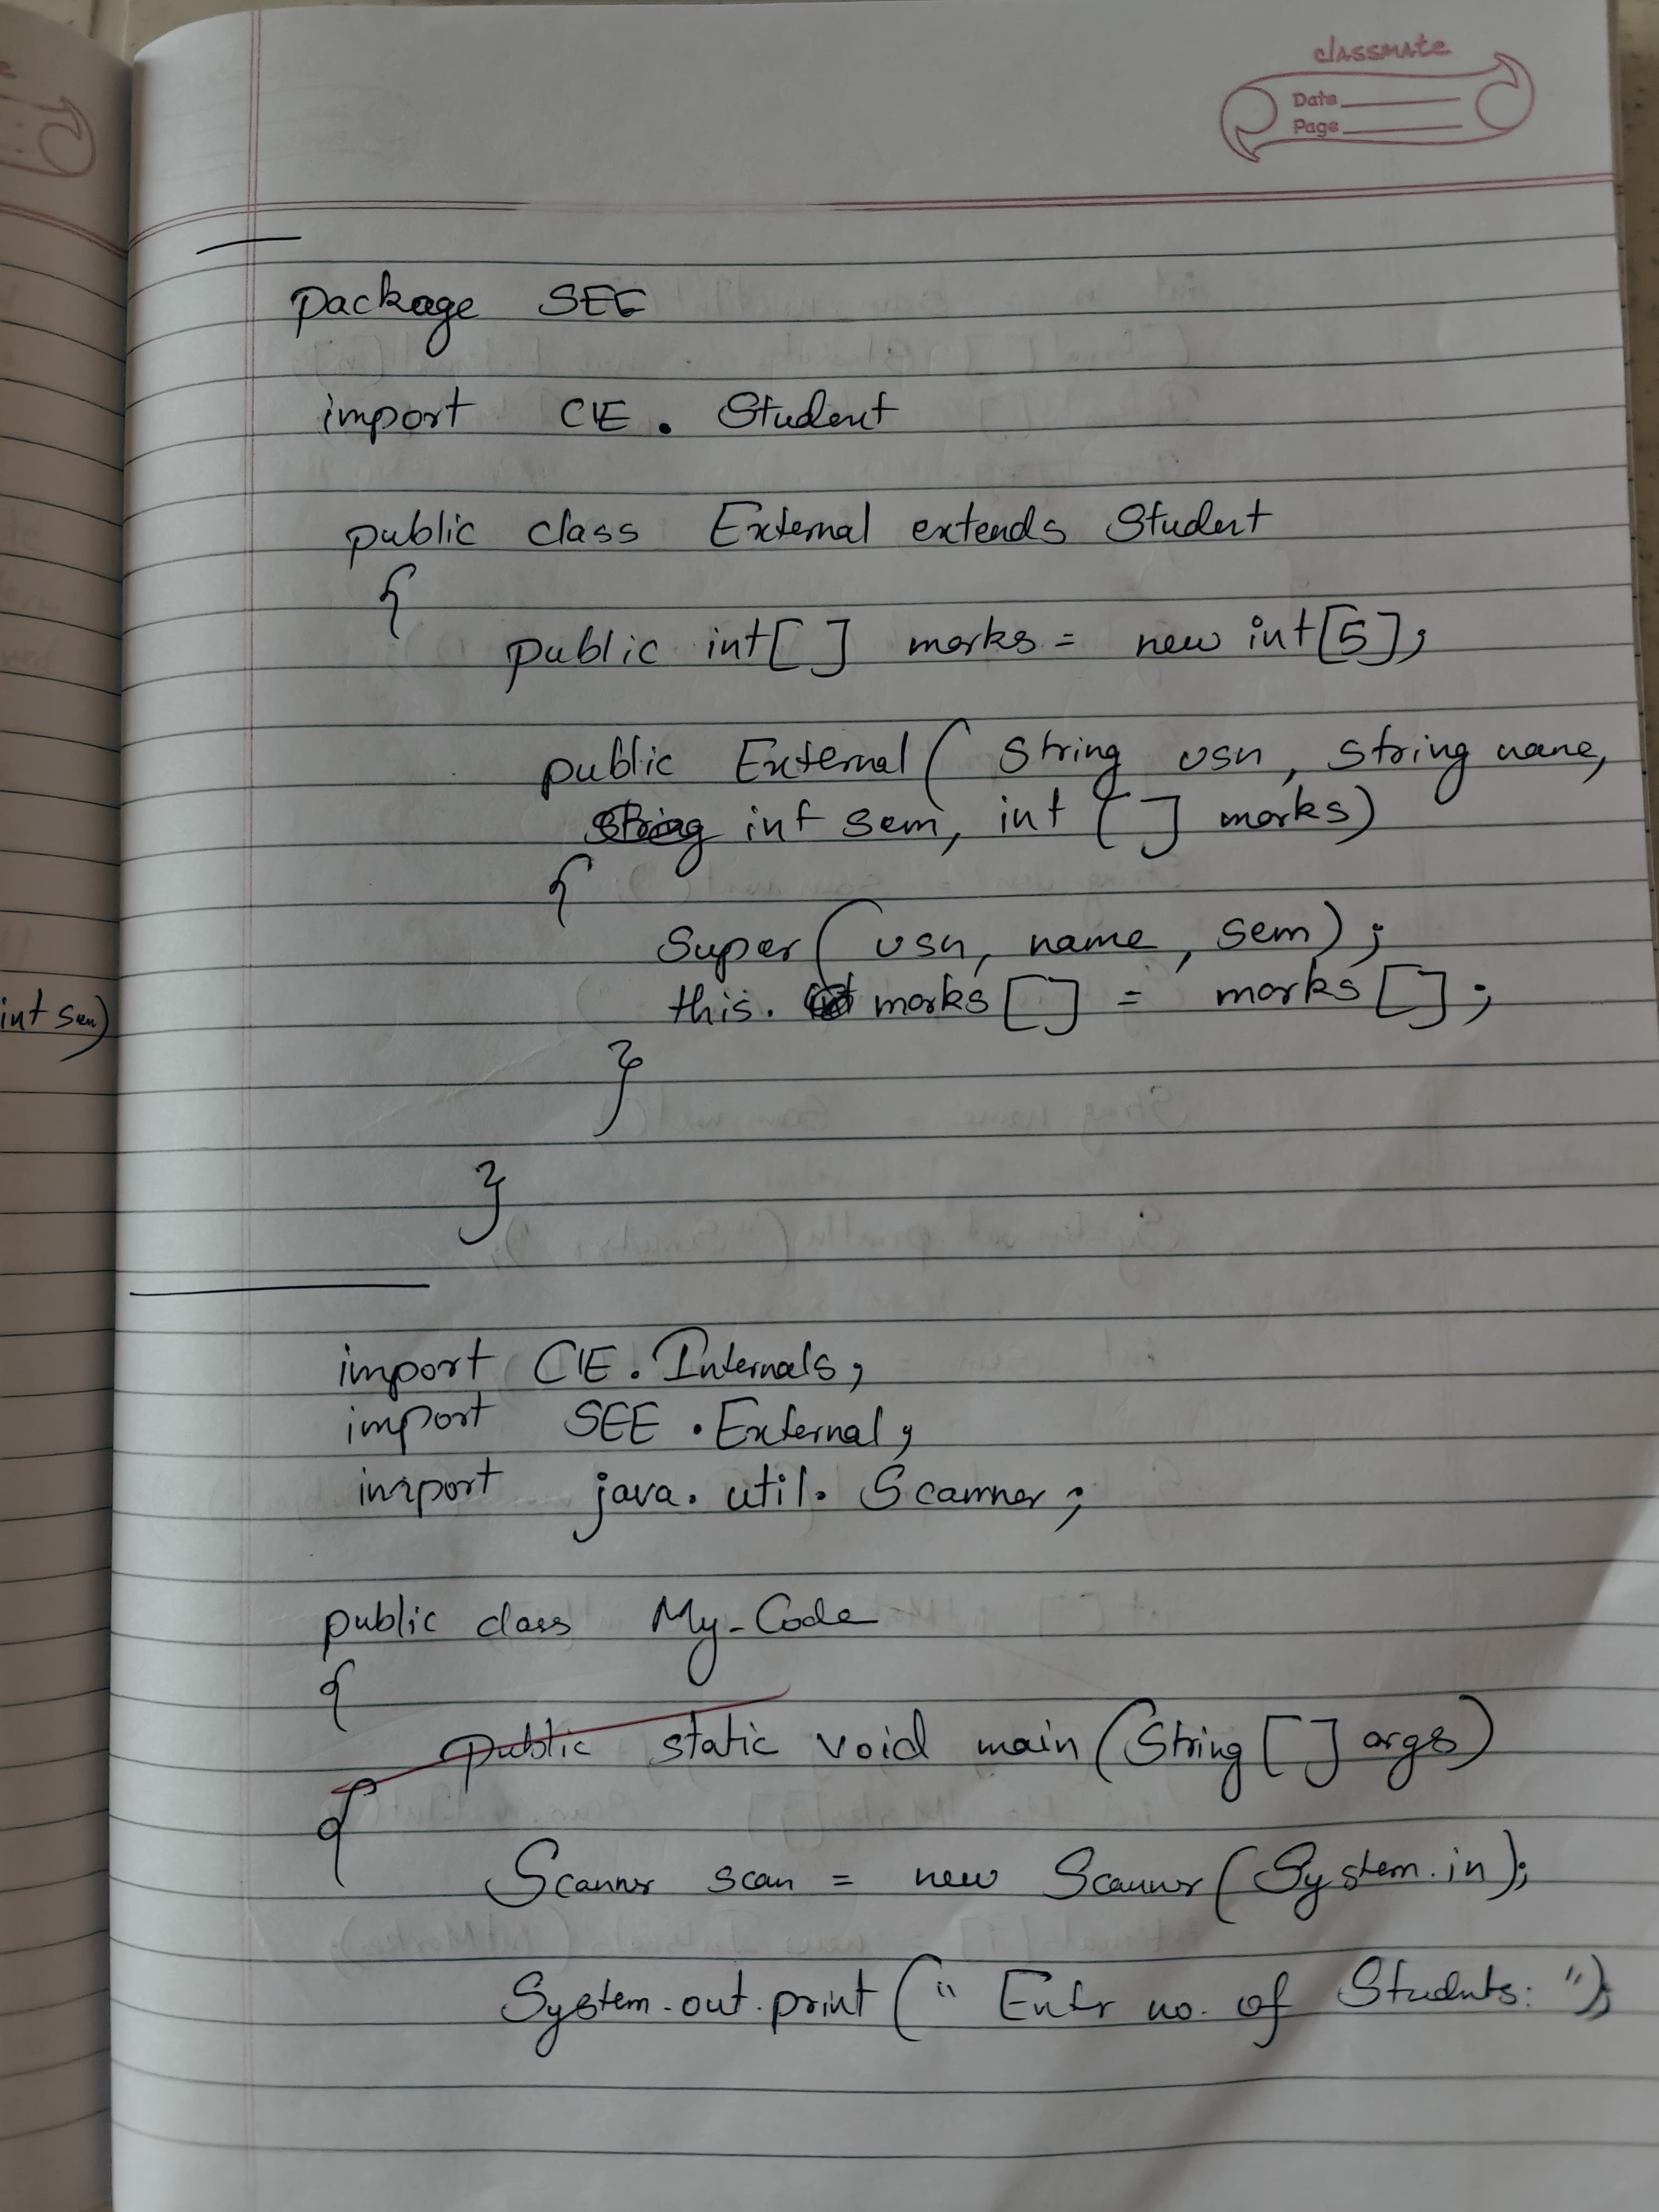 classmate
Date
Page
package SEE
import CIE . Student
public class External extends Student
{
public int[ ] marks = new int[5];
public External( String usn, String name,
int sem, int [ ] marks)
{
Super( usn, name, sem);
this. marks [] = marks [];
}
}
int sem)
import CIE. Internals;
import SEE . External;
import java. util. Scanner;
public class My_Code
{
public static void main(String [ ] args)
{
Scanner scan = new Scanner(System.in);
System.out.print(" Entr no. of Students: ");